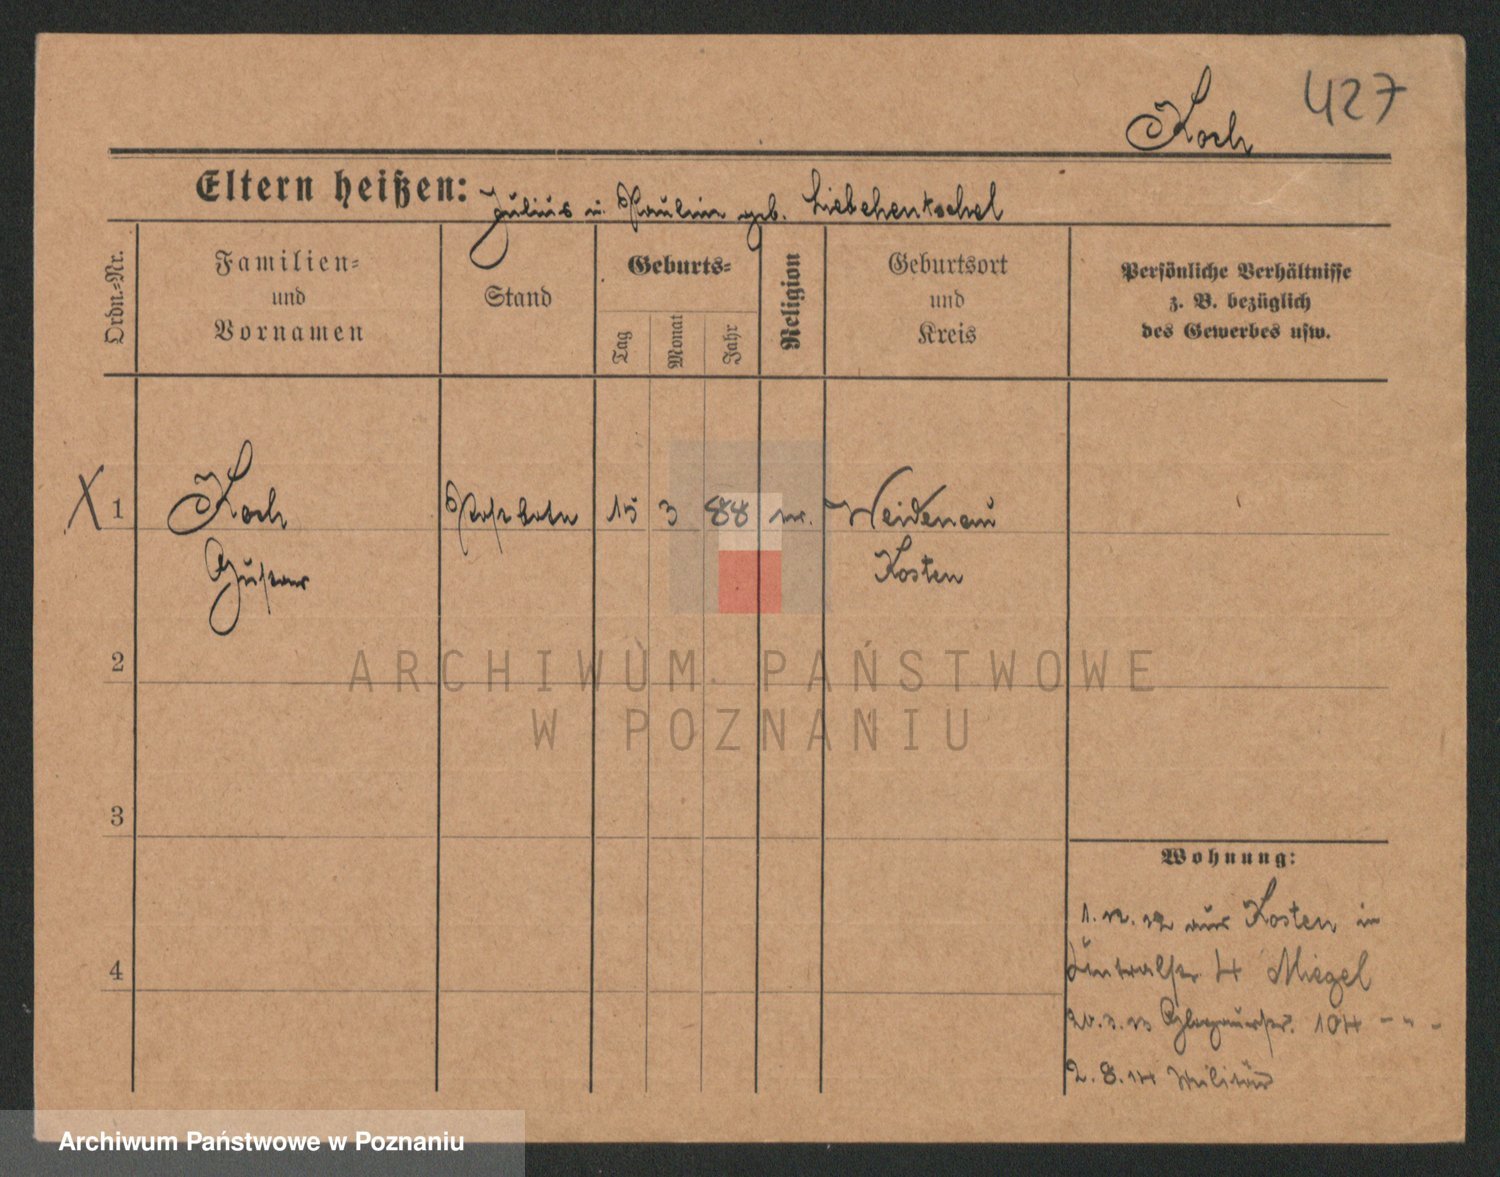 427
Koch
Eltern heißen: Julius u. Paulin geb. Liebchentschel
Ordn.-Nr.
Familien- und Vornamen
Stand
Geburts-
Tag
Monat
Jahr
Religion
Geburtsort und Kreis
Persönliche Verhältnisse
z. B. bezüglich
des Gewerbes usw.
X 1 Koch Postbote 15 3 88 Weidenau
Gustav Kosten
2
3
4
ARCHIWUM PAŃSTWOWE
W POZNANIU
Wohnung:
1. 12. 12 aus Kosten in
4 Miegel
20. 3. 13 104 - " -
2. 8. 14 Militär
Archiwum Państwowe w Poznaniu